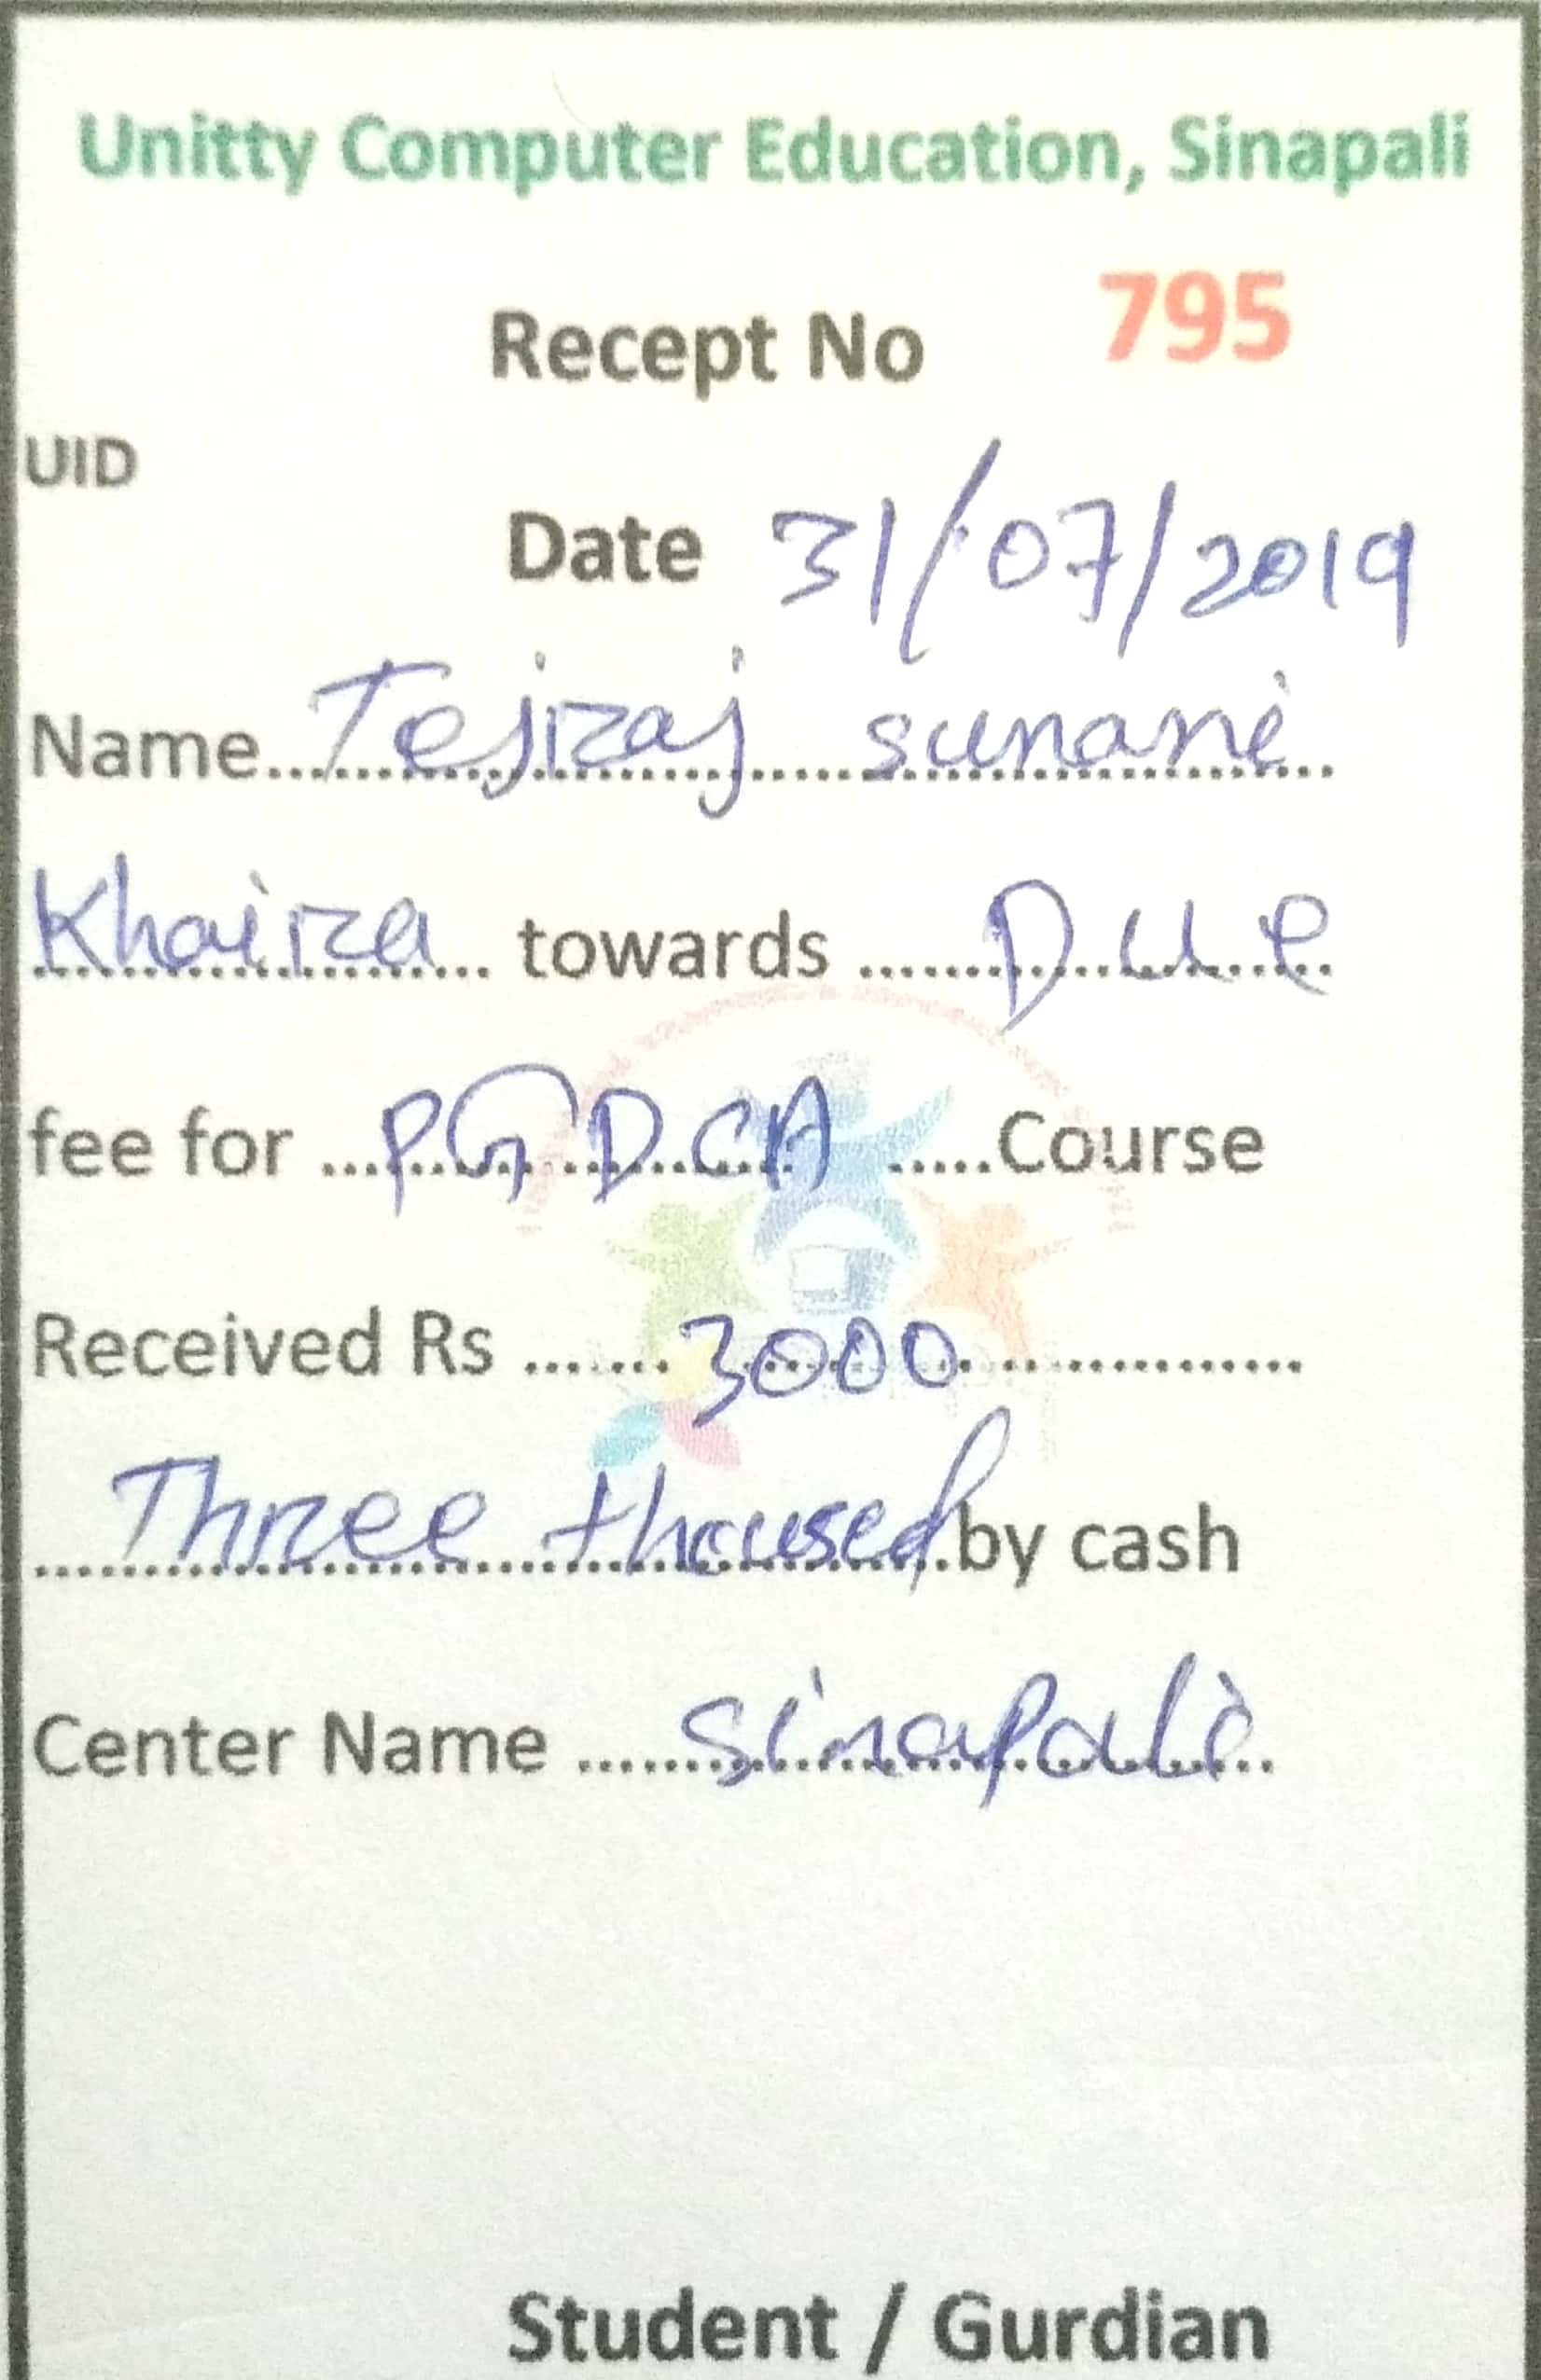 Unitty Computer Education, Sinapali
Recept No 795
UID
Date 31/07/2019
Name....Tejraj sunani....
Khaira.... towards ....Due
fee for ....PGDCA.....Course
Received Rs .......3000............
....Three thoused.by cash
Center Name ......Sinapali..
Student / Gurdian